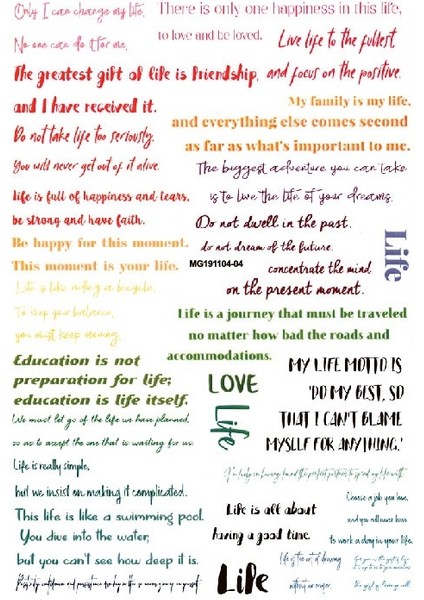 Only I can change my life.
No one can do it for me.
There is only one happiness in this life,
to love and be loved.
Live life to the fullest,
and focus on the positive.
The greatest gift of life is friendship,
and I have received it.
My family is my life,
and everything else comes second
as far as what's important to me.
Do not take life too seriously.
You will never get out of it alive.
The biggest adventure you can take
is to live the life of your dreams.
life is full of happiness and tears,
be strong and have faith.
Do not dwell in the past,
do not dream of the future,
concentrate the mind
on the present moment.
Life
Be happy for this moment.
This moment is your life.
MG191104-04
Life is like riding a bicycle.
To keep your balance,
you must keep moving.
Life is a journey that must be traveled
no matter how bad the roads and
accommodations.
Education is not
preparation for life;
education is life itself.
LOVE
Life
MY LIFE MOTTO IS
'DO MY BEST, SO
THAT I CAN'T BLAME
MYSLLF FOR ANYTHING.'
We must let go of the life we have planned,
so as to accept the one that is waiting for us.
Life is really simple,
but we insist on making it complicated.
This life is like a swimming pool.
You dive into the water,
but you can't see how deep it is.
Life is all about
having a good time.
Choose a job you love,
and you will never have
to work a day in your life.
Life is the art of drawing
without an eraser.
Life